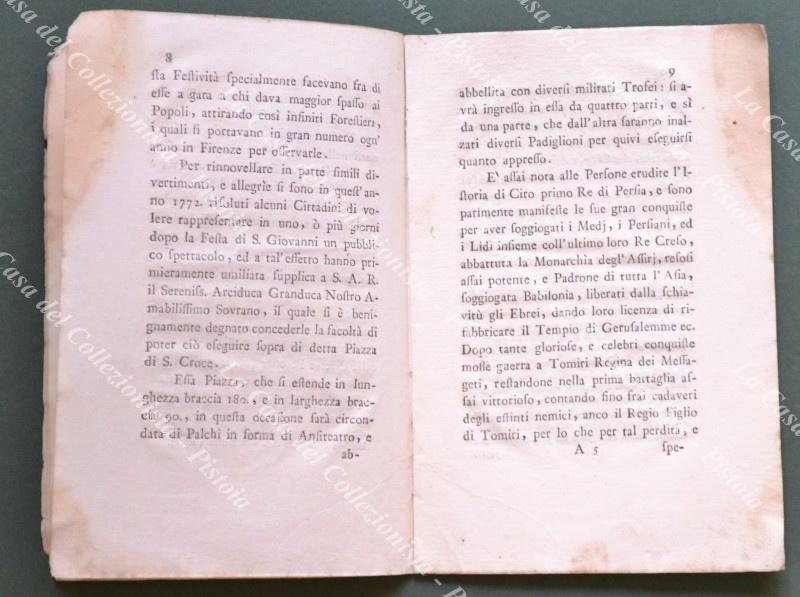 8
sta Festività specialmente facevano fra di
esse a gara a chi dava maggior spasso ai
Popoli, attirando così infiniti Forestieri,
i quali si portavano in gran numero ogn'
anno in Firenze per osservarle.
Per rinnovellare in parte simili di-
vertimenti, e allegrìe si sono in quest'an-
no 1772. risoluti alcuni Cittadini di vo-
lere rappresentare in uno, ò più giorni
dopo la Festa di S. Giovanni un pubbli-
co spettacolo, ed a tal'effetto hanno pri-
mieramente umiliata supplica a S. A. R.
il Sereniss. Arciduca Granduca Nostro A-
mabilissimo Sovrano, il quale si è beni-
gnamente degnato concederle la facoltà di
poter ciò eseguire sopra di detta Piazza
di S. Croce.
Essa Piazza, che si estende in lun-
ghezza braccia 180. e in larghezza brac-
cia 90., in questa occasione sarà circon-
data di Palchi in forma di Anfiteatro, e
ab-
9
abbellita con diversi militari Trofei: si a-
vrà ingresso in essa da quattro parti, e sì
da una parte, che dall'altra saranno inal-
zati diversi Padiglioni per quivi eseguirsi
quanto appresso.
E' assai nota alle Persone erudite l'I-
storia di Ciro primo Re di Persia, e sono
parimente manifeste le sue gran conquiste
per aver soggiogati i Medj, i Persiani, ed
i Lidi insieme coll'ultimo loro Re Creso,
abbattuta la Monarchìa degl'Assirj, resosi
assai potente, e Padrone di tutta l'Asia,
soggiogata Babilonia, liberati dalla schia-
vitù gli Ebrei, dando loro licenza di ri-
fabbricare il Tempio di Gerusalemme ec.
Dopo tante gloriose, e celebri conquiste
mosse guerra a Tomiri Regina dei Messa-
geti, restandone nella prima battaglia as-
sai vittorioso, contando fino frai cadaveri
degli estinti nemici, anco il Regio Figlio
di Tomiri, per lo che per tal perdita, e
A 5 spe-
La Casa del Collezionista - Pistoia